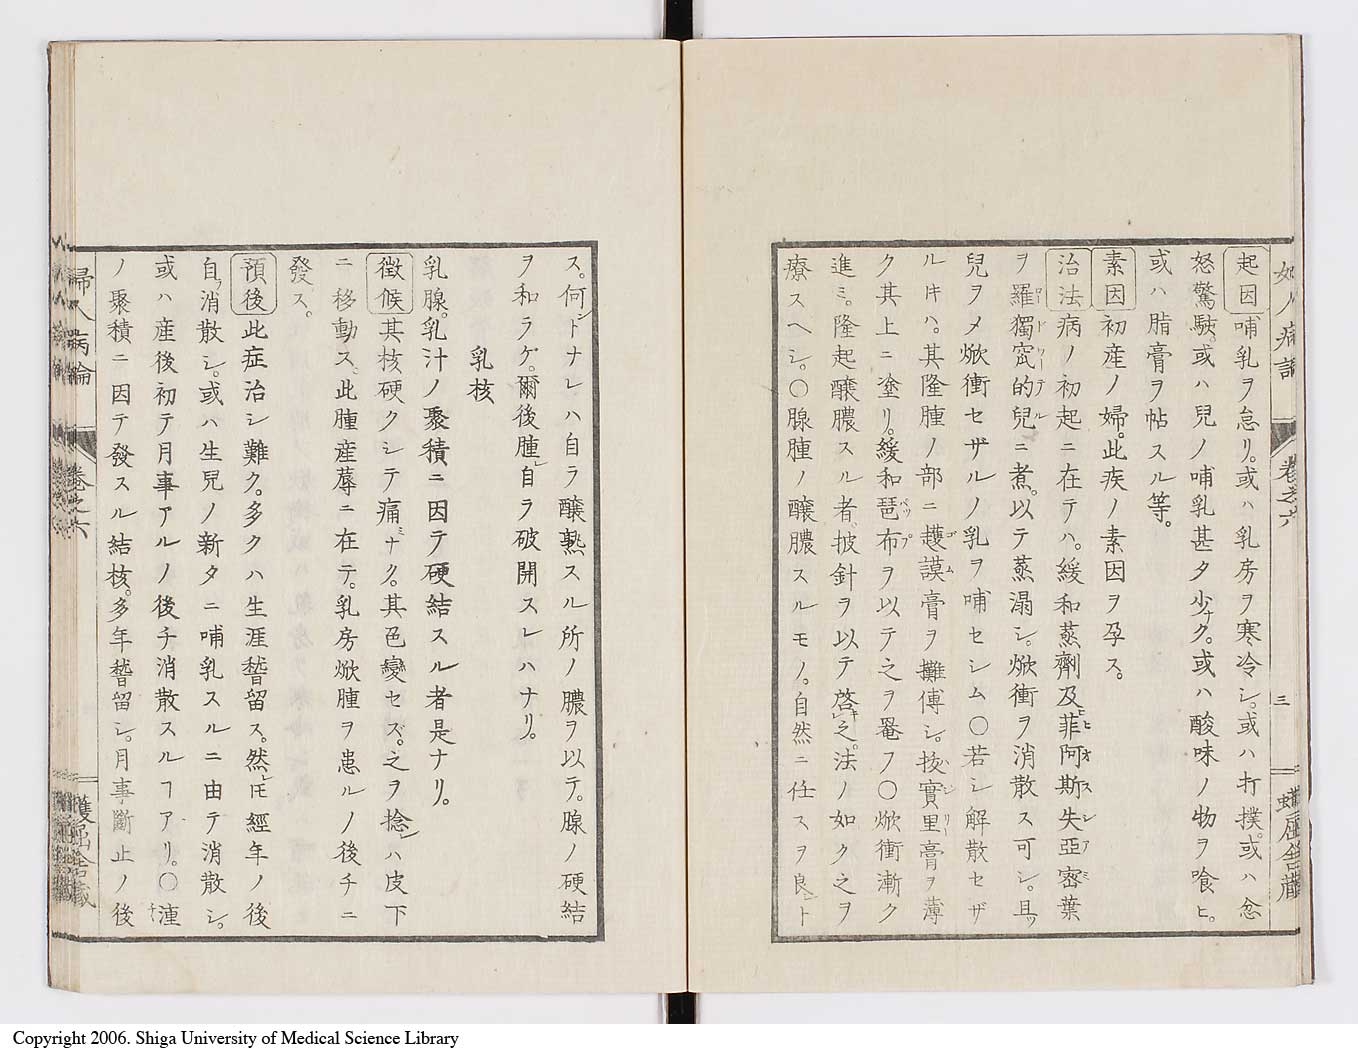 起因哺乳ヲ怠リ。或ハ乳房ヲ寒冷シ。或ハ打撲。或ハ忿
怒驚駭。或ハ兒ノ哺乳甚タ少ナク。或ハ酸味ノ物ヲ喰ヒ。
或ハ脂膏ヲ帖スル等。
素因初産ノ婦。此疾ノ素因ヲ孕ス。
治法病ノ初起ニ在テハ。緩和蒸劑及菲阿斯失亞密葉
ヲ羅獨窊的兒ニ煮。以テ蒸溻シ。焮衝ヲ消散ス可シ。且ツ
兒ヲメ焮衝セザルノ乳ヲ哺セシム〇若シ解散セザ
ルキハ。其隆腫ノ部ニ護謨膏ヲ攤傅シ。拔實里膏ヲ薄
ク其上ニ塗リ。緩和琶布ヲ以テ之ヲ罨フ〇焮衝漸ク
進ミ。隆起釀膿スル者。披針ヲ以テ啓キ之。法ノ如ク之ヲ
療スヘシ。〇腺腫ノ釀膿スルモノ。自然ニ任スヲ良トス
三
卷之六
ス。何トナレハ自ラ釀熟スル所ノ膿ヲ以テ。腺ノ硬結
ヲ和ラケ。爾後腫自ラ破開スレハナリ。
乳核
乳腺。乳汁ノ聚積ニ因テ硬結スル者是ナリ。
徴候其核硬クシテ痛ミナク。其色變セズ。之ヲ捻ハ皮下
ニ移動ス。此腫産蓐ニ在テ。乳房焮腫ヲ患ルノ後チニ
發ス。
預後此症治シ難ク。多クハ生涯嵆留ス。然レ𪜈經年ノ後
自ラ消散シ。或ハ生兒ノ新タニ哺乳スルニ由テ消散シ。
或ハ産後初テ月事アルノ後チ消散スルヿアリ。〇湩
ノ聚積ニ因テ發スル結核。多年嵆留シ。月事斷止ノ後
婦人病論
卷之六
Copyright 2006. Shiga University of Medical Science Library